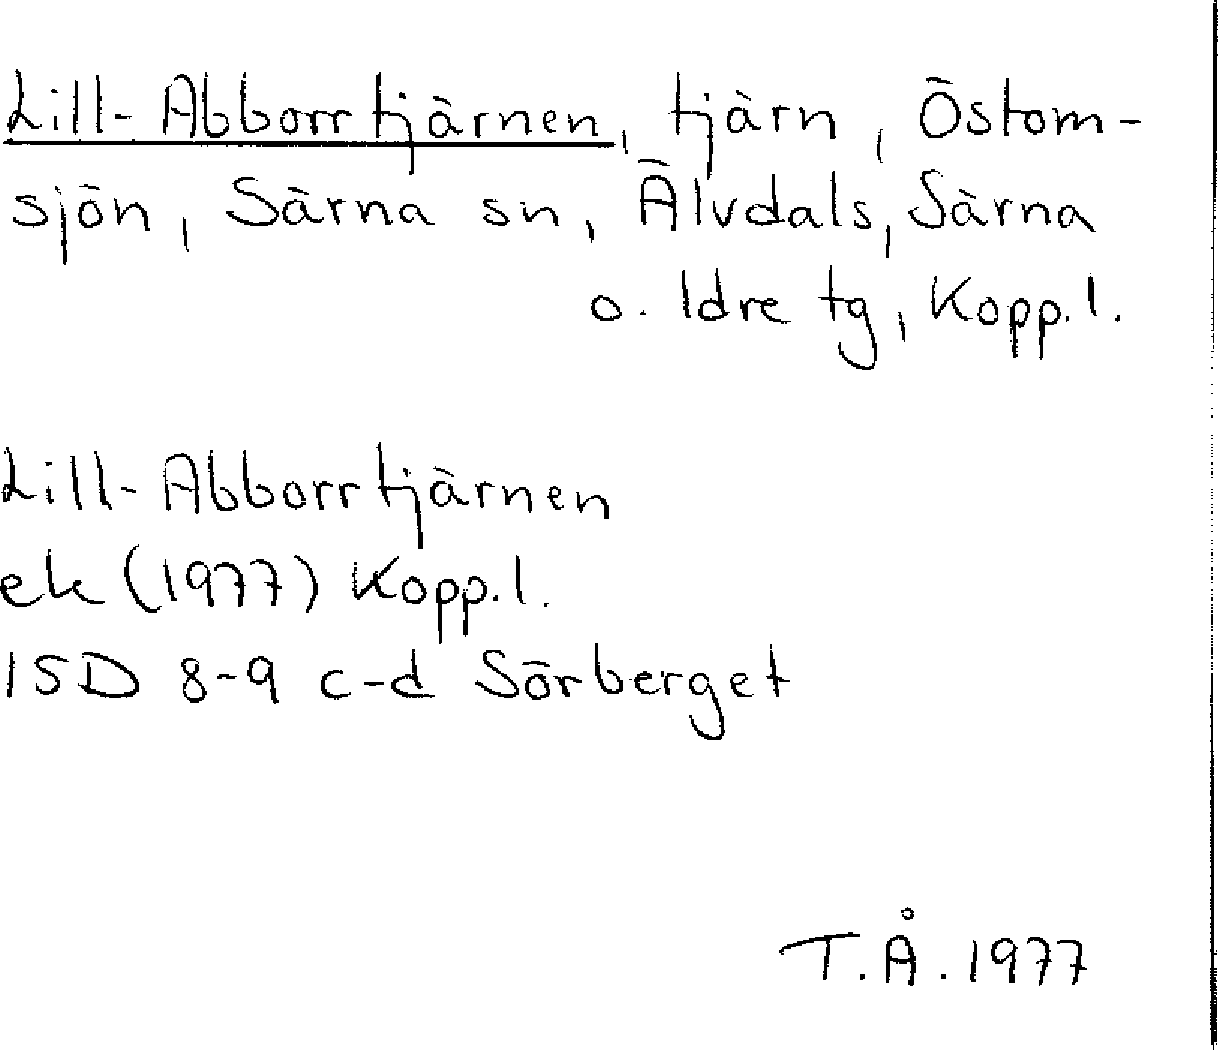 Lill-Abborrtjärnen, tjärn, Östom-
sjön, Särna sn, Älvdals, Särna
o. Idre tg, Kopp.l.
Lill-Abborrtjärnen
ek (1977) Kopp.l.
15D 8-9 c-d Sörberget
T.Å. 1977